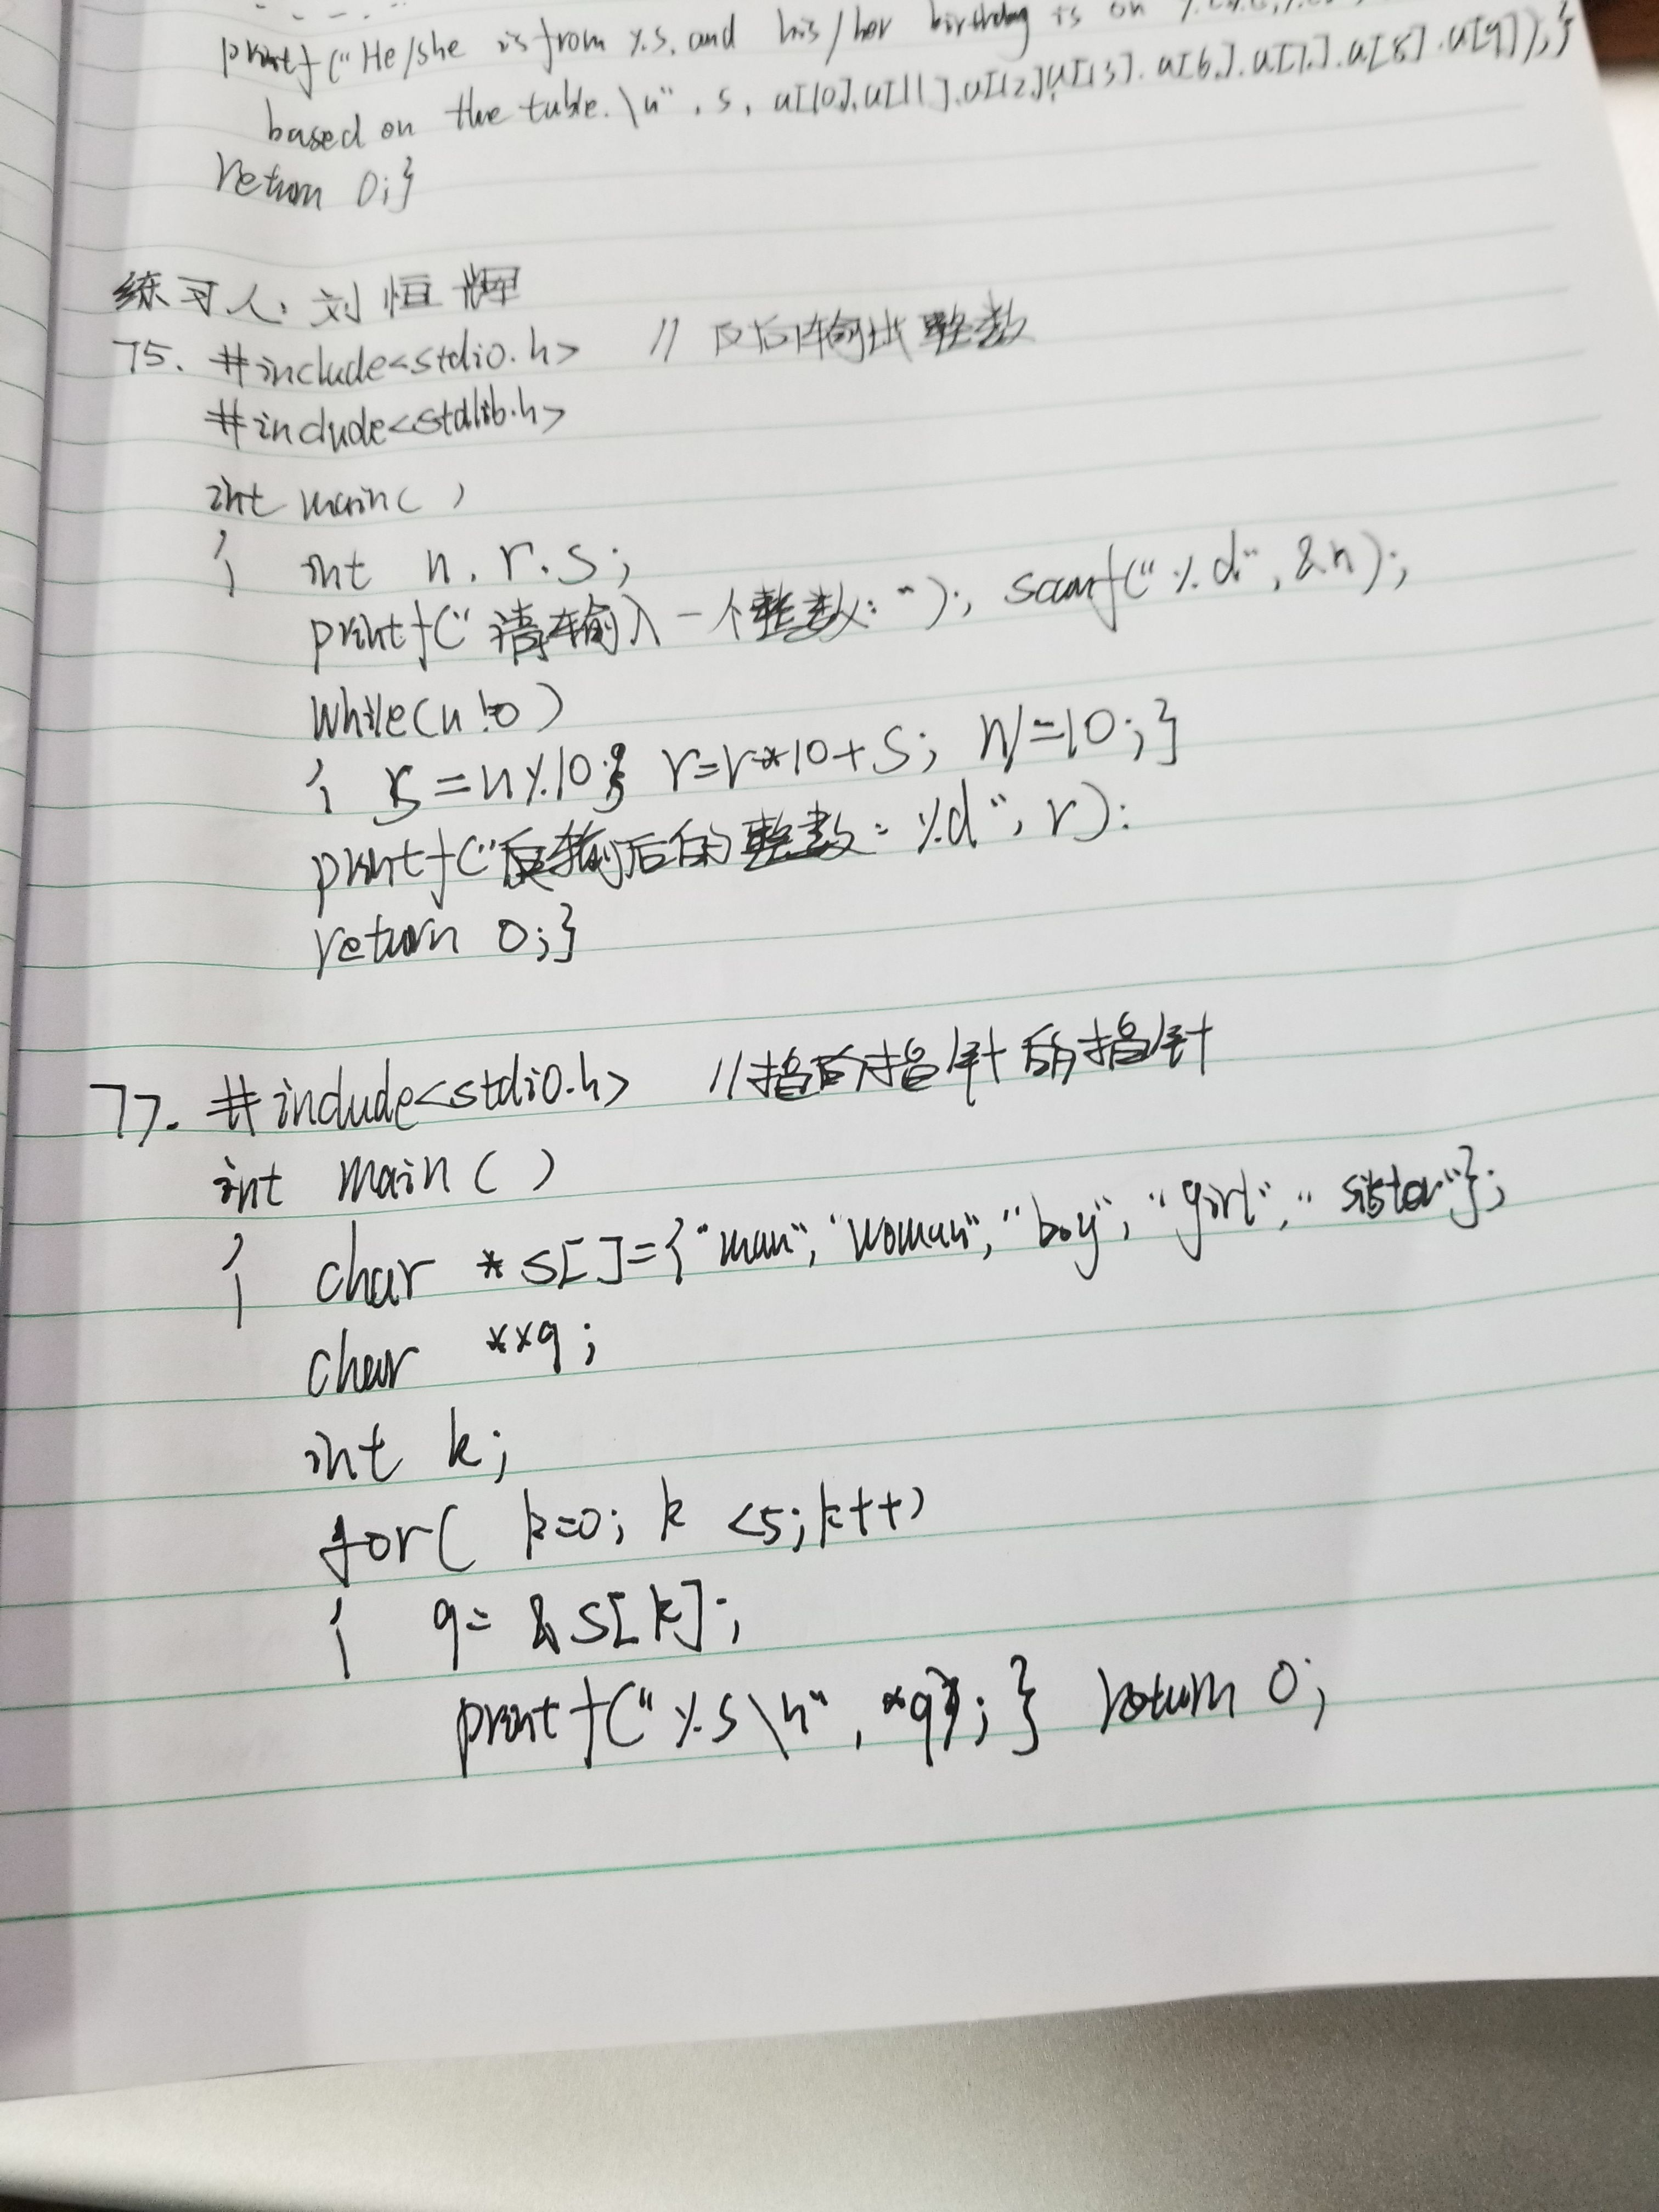 printf("He/she is from %s, and his/her birthday is on
based on the table.\n", s, a[10],a[11],a[12],a[13],a[6],a[7],a[8],a[9]);}
return 0;}
练习人: 刘恒辉
75. #include<stdio.h> // 反向输出整数
#include<stdlib.h>
int main()
{ int n, r, s;
printf("请输入一个整数: "); scanf("%d", &n);
while(n!=0)
{ s=n%10; r=r*10+s; n/=10;}
printf("反输后的整数: %d", r);
return 0;}
77. #include<stdio.h> //指向指针的指针
int main()
{ char *s[]={"man","woman","boy","girl","sister"};
char **q;
int k;
for( k=0; k <5; k++)
{ q= &s[k];
printf("%s\n", *q); } return 0;